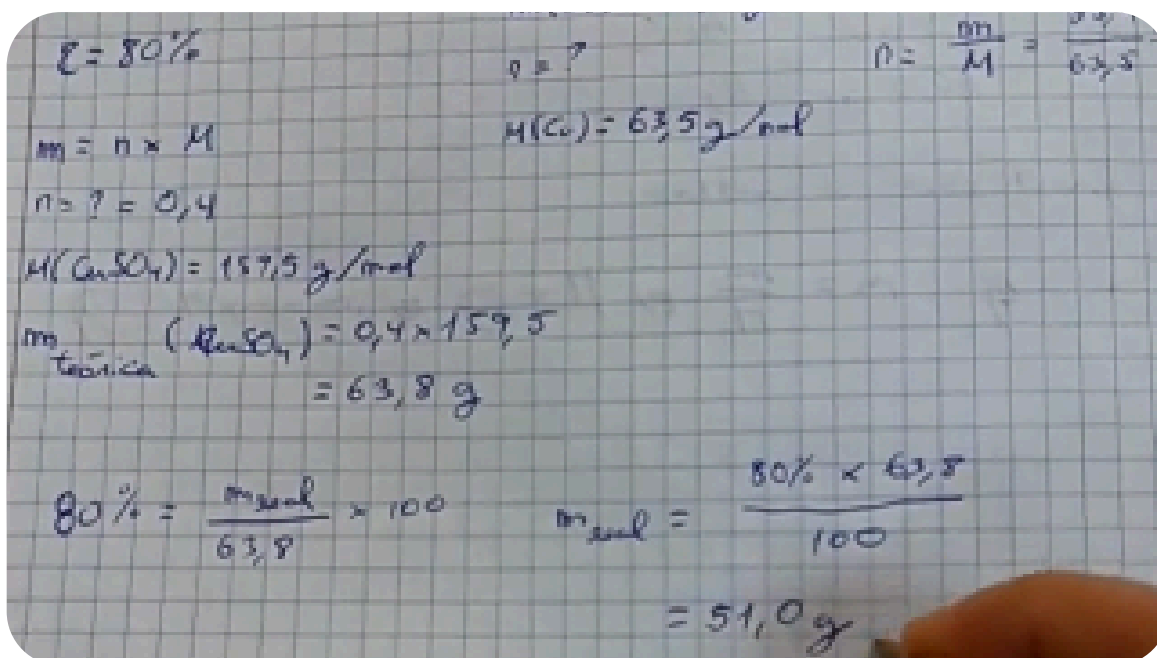 η = 80%
n = ?
n = m/M = /63,5
m = n × M
M(Cu) = 63,5 g/mol
n = ? = 0,4
M(CuSO₄) = 159,5 g/mol
m teórica (CuSO₄) = 0,4 × 159,5
= 63,8 g
80% = m real/63,8 × 100
m real = 80% × 63,8/100
= 51,0 g